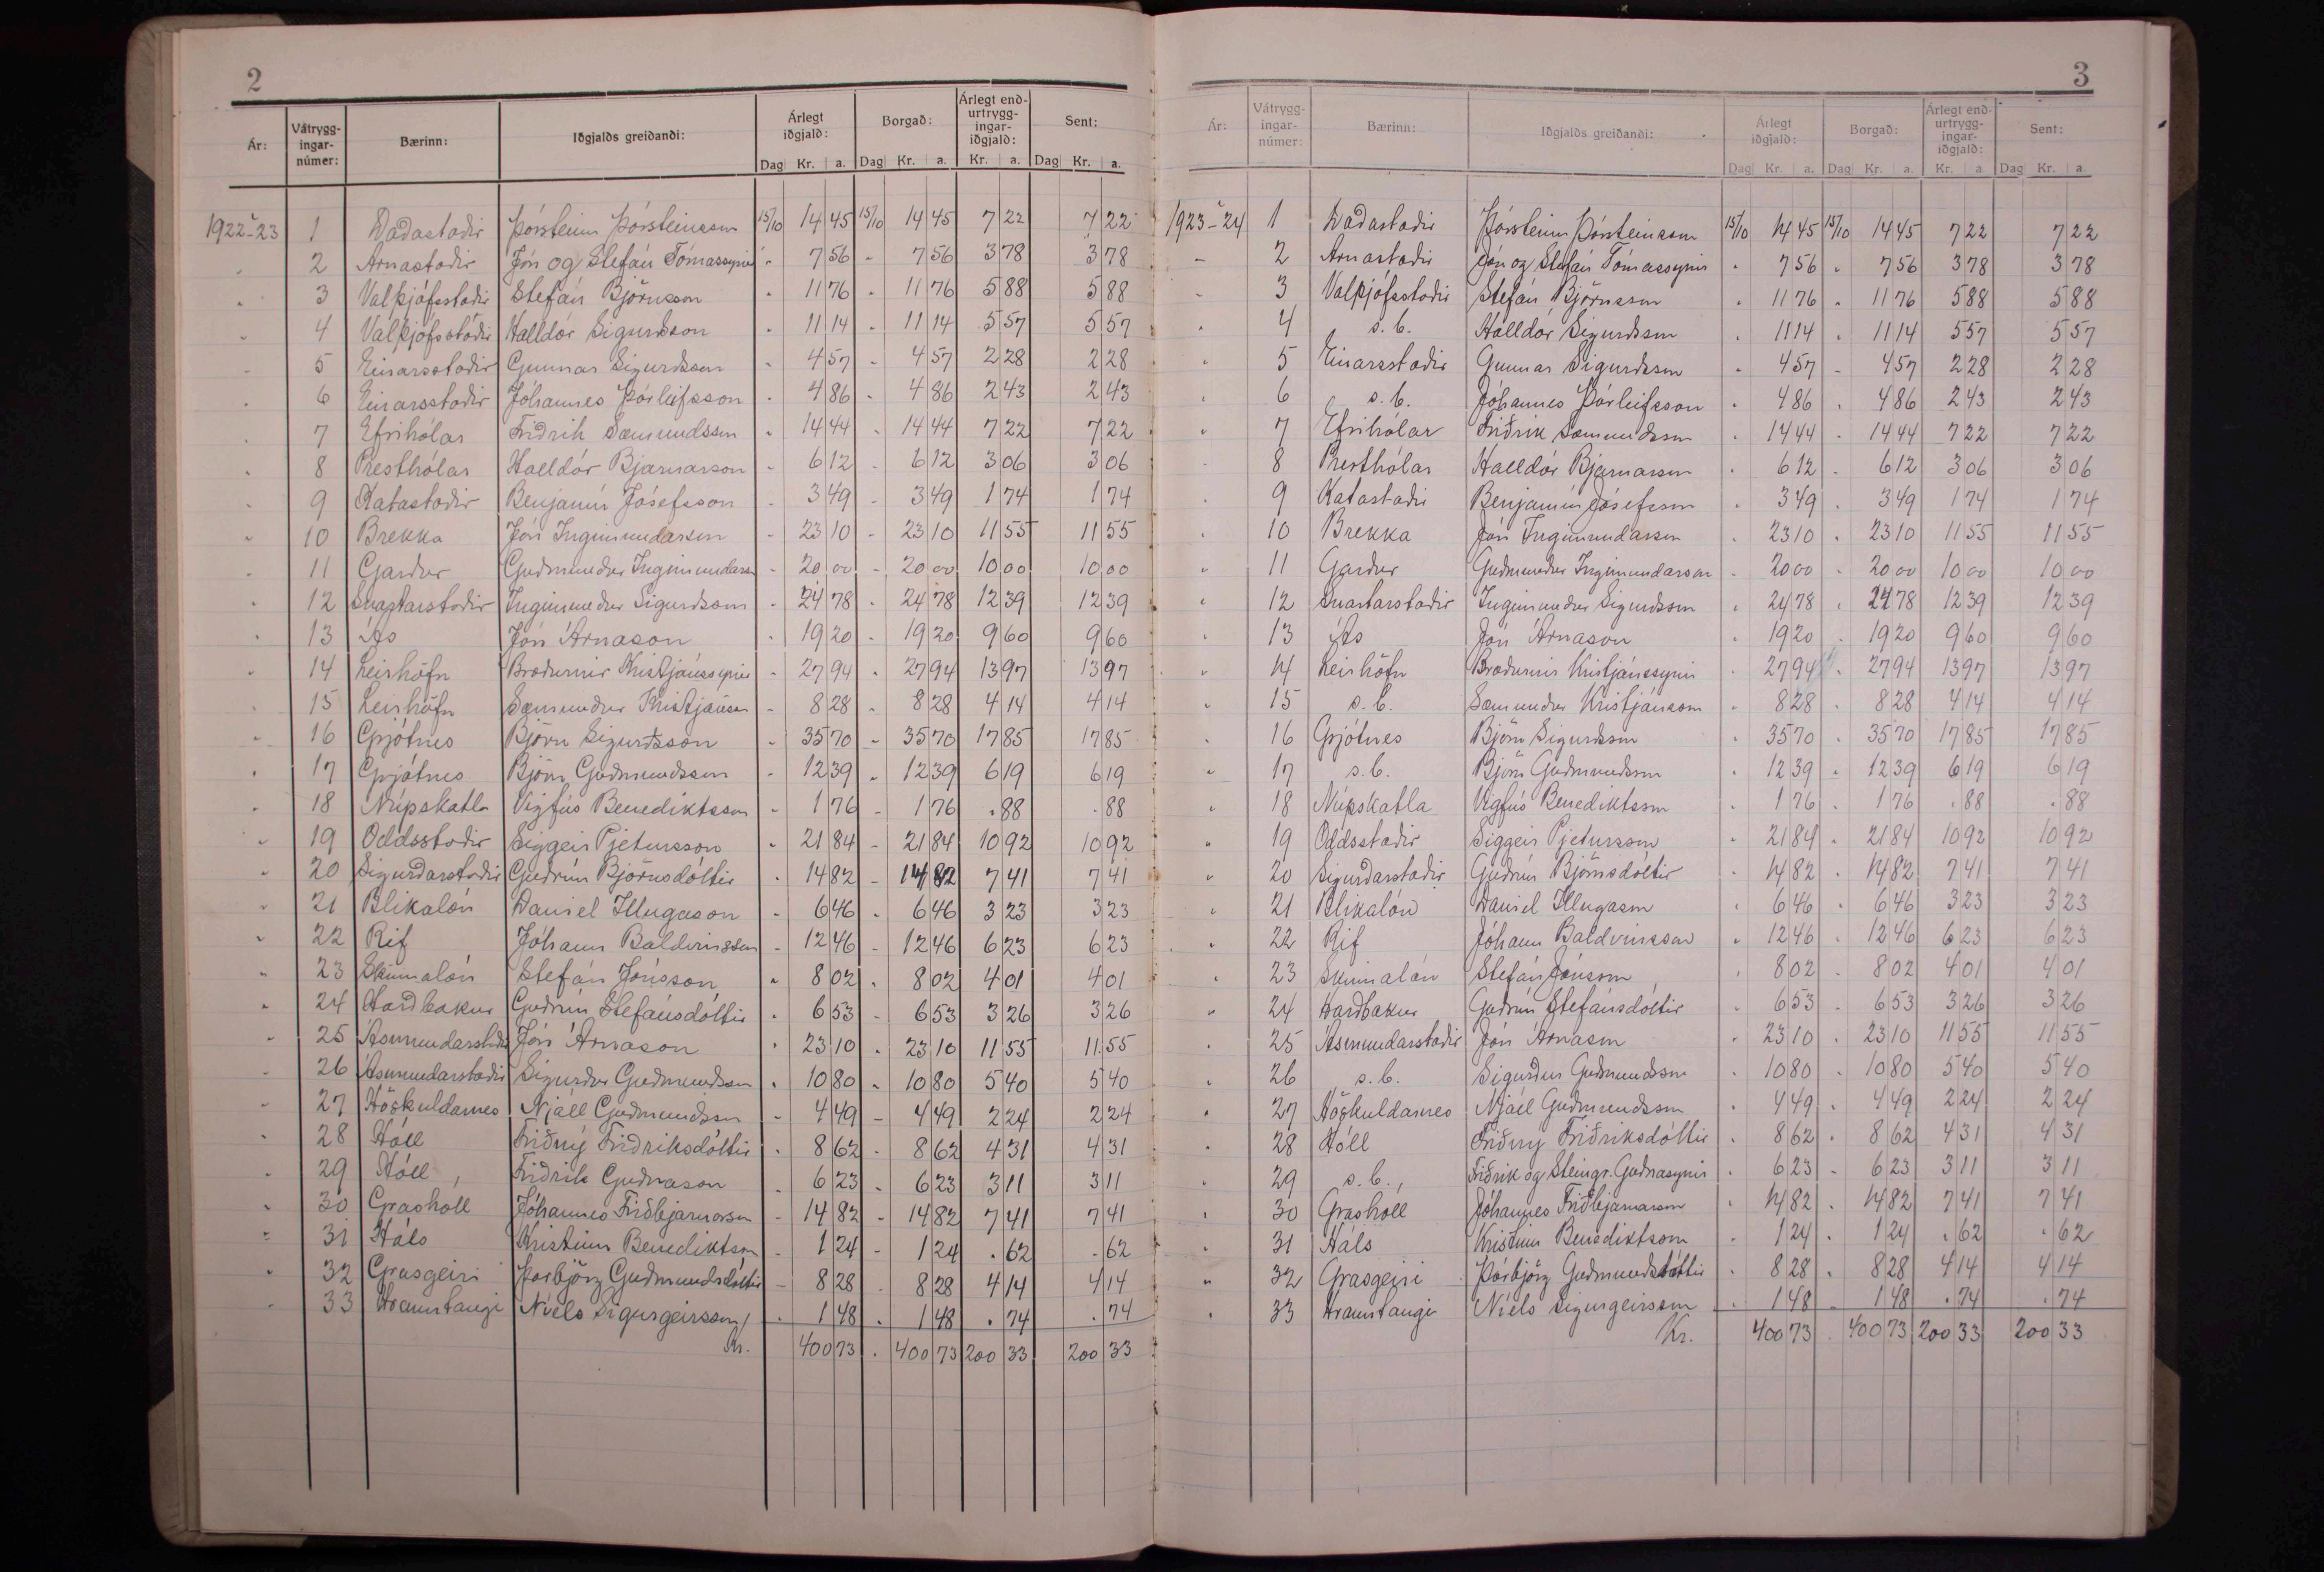 2
Ár: Vátrygg-ingar-númer: Bærinn: Iðgjalds greiðandi: Árlegt iðgjald: Borgað: Árlegt end-urtrygg-ingar-iðgjald: Sent:
Dag Kr. a. Dag Kr. a. Kr. a. Dag Kr. a.
1922-23 1 Dadastadir Þórsteinn Þórsteinsson 15/10 14 45 15/10 14 45 7 22 7 22
" 2 Arnastadir Jón og Stefán Tómassynir " 7 56 " 7 56 3 78 3 78
" 3 Valþjófsstadir Stefán Björnsson " 11 76 " 11 76 5 88 5 88
" 4 Valþjófsstadir Halldór Sigurdsson " 11 14 " 11 14 5 57 5 57
" 5 Einarsstadir Gunnar Sigurdsson " 4 57 " 4 57 2 28 2 28
" 6 Einarsstadir Jóhannes Þórleifsson " 4 86 " 4 86 2 43 2 43
" 7 Efrihólar Fridrik Sæmundsson " 14 44 " 14 44 7 22 7 22
" 8 Presthólar Halldór Bjarnarson " 6 12 " 6 12 3 06 3 06
" 9 Katastadir Benjamín Jósefsson " 3 49 " 3 49 1 74 1 74
" 10 Brekka Jón Ingimundarson " 23 10 " 23 10 11 55 11 55
" 11 Gardur Gudmundur Ingimundarson " 20 00 " 20 00 10 00 10 00
" 12 Snartarstadir Ingimundur Sigurdsson " 24 78 " 24 78 12 39 12 39
" 13 Ás Jón Árnason " 19 20 " 19 20 9 60 9 60
" 14 Leirhöfn Brædurnir Kristjánssynir " 27 94 " 27 94 13 97 13 97
" 15 Leirhöfn Sæmundur Kristjánsson " 8 28 " 8 28 4 14 4 14
" 16 Grjótnes Björn Sigurdsson " 35 70 " 35 70 17 85 17 85
" 17 Grjótnes Björn Gudmundsson " 12 39 " 12 39 6 19 6 19
" 18 Núpskatla Vigfús Benediktsson " 1 76 " 1 76 " 88 " 88
" 19 Oddsstadir Siggeir Pjetursson " 21 84 " 21 84 10 92 10 92
" 20 Sigurdarstadir Gudrún Björnsdóttir " 14 82 " 14 82 7 41 7 41
" 21 Blikalón Daniel Illugason " 6 46 " 6 46 3 23 3 23
" 22 Rif Jóhann Baldvinsson " 12 46 " 12 46 6 23 6 23
" 23 Skinnalón Stefán Jónsson " 8 02 " 8 02 4 01 4 01
" 24 Hardbakur Gudrún Stefánsdóttir " 6 53 " 6 53 3 26 3 26
" 25 Ásmundarstadir Jón Árnason " 23 10 " 23 10 11 55 11 55
" 26 Ásmundarstadir Sigurdur Gudmundsson " 10 80 " 10 80 5 40 5 40
" 27 Höskuldarnes Njáll Gudmundsson " 4 49 " 4 49 2 24 2 24
" 28 Hóll Friðný Fridriksdóttir " 8 62 " 8 62 4 31 4 31
" 29 Hóll Fridrik Gudnason " 6 23 " 6 23 3 11 3 11
" 30 Grashóll Jóhannes Friðbjarnarson " 14 82 " 14 82 7 41 7 41
" 31 Háls Kristinn Benediktsson " 1 24 " 1 24 " 62 " 62
" 32 Grasgeiri Þorbjörg Gudmundsdóttir " 8 28 " 8 28 4 14 4 14
" 33 Hraunstangi Níels Sigurgeirsson " 1 48 " 1 48 " 74 " 74
Kr. 400 73 " 400 73 200 33 200 33
3
Ár: Vátrygg-ingar-númer: Bærinn: Iðgjalds greiðandi: Árlegt iðgjald: Borgað: Árlegt end-urtrygg-ingar-iðgjald: Sent:
Dag Kr. a. Dag Kr. a. Kr. a Dag Kr. a
1923-24 1 Dadastadir Þórsteinn Þórsteinsson 15/10 14 45 15/10 14 45 7 22 7 22
" 2 Arnastadir Jón og Stefán Tómassynir " 7 56 " 7 56 3 78 3 78
" 3 Valþjófsstadir Stefán Björnsson " 11 76 " 11 76 5 88 5 88
" 4 s. b. Halldór Sigurdsson " 11 14 " 11 14 5 57 5 57
" 5 Einarsstadir Gunnar Sigurdsson " 4 57 " 4 57 2 28 2 28
" 6 s. b. Jóhannes Þórleifsson " 4 86 " 4 86 2 43 2 43
" 7 Efrihólar Friðrik Sæmundsson " 14 44 " 14 44 7 22 7 22
" 8 Presthólar Halldór Bjarnarson " 6 12 " 6 12 3 06 3 06
" 9 Katastadir Benjamín Jósefsson " 3 49 " 3 49 1 74 1 74
" 10 Brekka Jón Ingimundarson " 23 10 " 23 10 11 55 11 55
" 11 Gardur Gudmundur Ingimundarson " 20 00 " 20 00 10 00 10 00
" 12 Snartarstadir Ingimundur Sigurdsson " 24 78 " 24 78 12 39 12 39
" 13 Ás Jón Árnason " 19 20 " 19 20 9 60 9 60
" 14 Leirhöfn Brædurnir Kristjánssynir " 27 94 " 27 94 13 97 13 97
" 15 s. b. Sæmundur Kristjánsson " 8 28 " 8 28 4 14 4 14
" 16 Grjótnes Björn Sigurdsson " 35 70 " 35 70 17 85 17 85
" 17 s. b. Björn Gudmundsson " 12 39 " 12 39 6 19 6 19
" 18 Núpskatla Vigfús Benediktsson " 1 76 " 1 76 " 88 " 88
" 19 Oddsstadir Siggeir Pjetursson " 21 84 " 21 84 10 92 10 92
" 20 Sigurdarstadir Gudrún Björnsdóttir " 14 82 " 14 82 7 41 7 41
" 21 Blikalón Daniel Illugason " 6 46 " 6 46 3 23 3 23
" 22 Rif Jóhann Baldvinsson " 12 46 " 12 46 6 23 6 23
" 23 Skinnalón Stefán Jónsson " 8 02 " 8 02 4 01 4 01
" 24 Hardbakur Gudrún Stefánsdóttir " 6 53 " 6 53 3 26 3 26
" 25 Ásmundarstadir Jón Árnason " 23 10 " 23 10 11 55 11 55
" 26 s. b. Sigurdur Gudmundsson " 10 80 " 10 80 5 40 5 40
" 27 Höskuldarnes Njáll Gudmundsson " 4 49 " 4 49 2 24 2 24
" 28 Hóll Friðný Friðriksdóttir " 8 62 " 8 62 4 31 4 31
" 29 s. b. Friðrik og Steingr. Gudnasynir " 6 23 " 6 23 3 11 3 11
" 30 Grashóll Jóhannes Friðbjarnarson " 14 82 " 14 82 7 41 7 41
" 31 Háls Kristinn Benediktsson " 1 24 " 1 24 " 62 " 62
" 32 Grasgeiri Þorbjörg Gudmundsdóttir " 8 28 " 8 28 4 14 4 14
" 33 Hraunstangi Níels Sigurgeirsson " 1 48 " 1 48 " 74 " 74
Kr. 400 73 " 400 73 200 33 200 33